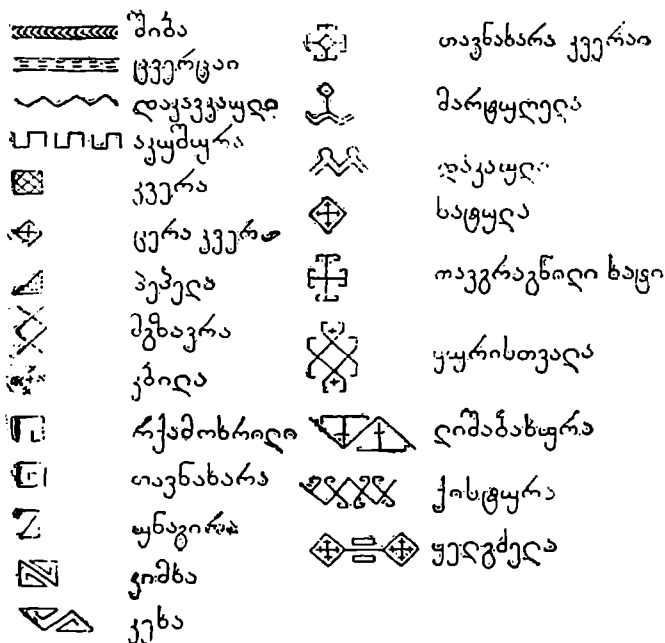 შიბა
ცვერცაი
დაკავკაული
აკუშკურა
კვერა
ცერა კვერა
პეპელა
მგზავრა
კბილა
რქამოხრილი
თავნახარა
უნაგირა
ჯიმხა
კეხა
თავნახარა კვერაი
მარტყლელა
დაკაული
ხატულა
თავგრაგნილი ხატი
ყურისთვალა
ლიშაბახურა
ქისტურა
ყელგძელა